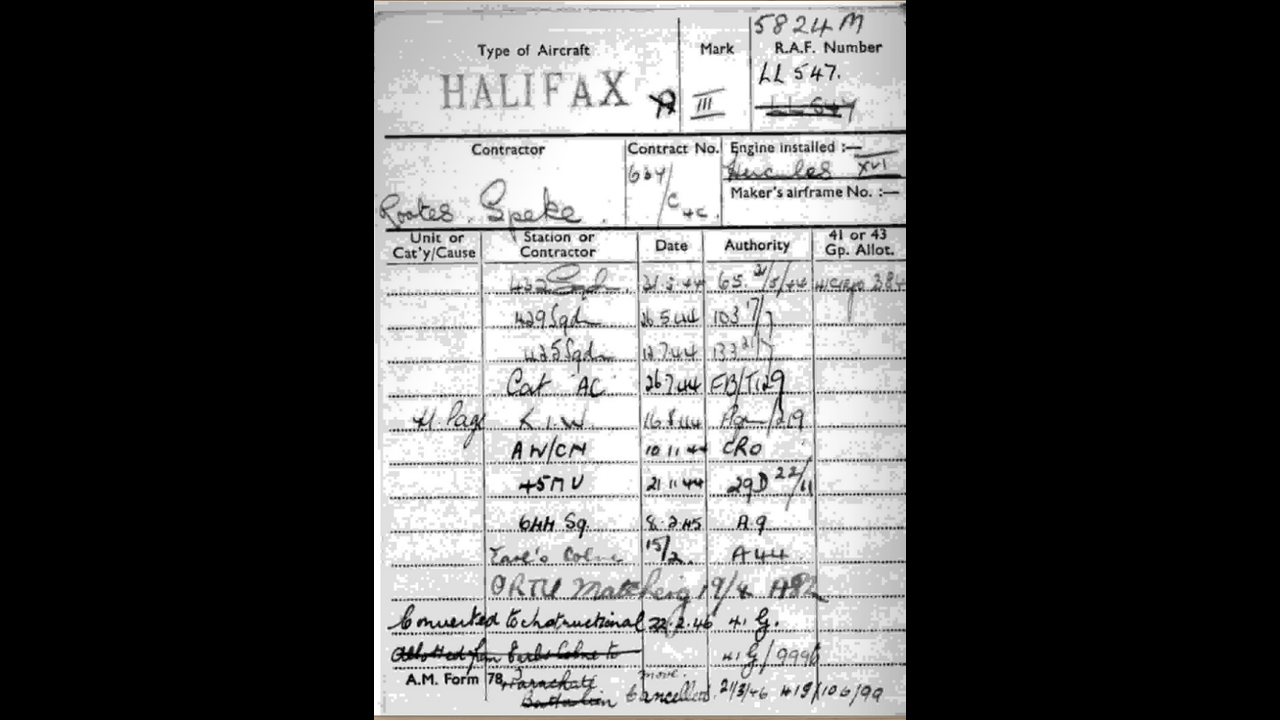 5824M
Type of Aircraft Mark R.A.F. Number
HALIFAX A III LL 547.
LL 547
Contractor Contract No. Engine installed :—
Hercules XVI
637/C4C. Maker's airframe No. :—
Rootes. Speke.
Unit or Cat'y/Cause Station or Contractor Date Authority 41 or 43 Gp. Allot.
432 Sqdn. 21.5.44 65. 21/5/44
429 Sqdn 26.5.44 103 7/
425 Sqdn 12.7.44 133 21/
Cat AC 26.7.44 FB/T129
H. Page 16.8.44 /219
AW/CN 10 11 44 CRO
45MU 21 11 44 29D 22/11
644 Sq. 8.2.45 A9
Earl's Colne 15/2. A44
ORTU Matching 19/8
Converted to Instructional 22.2.46 41 G.
Allotted from Earls Colne to 41 G/
A.M. Form 78 Parachute move.
Battalion Cancelled. 21/3/46 41G/106/99